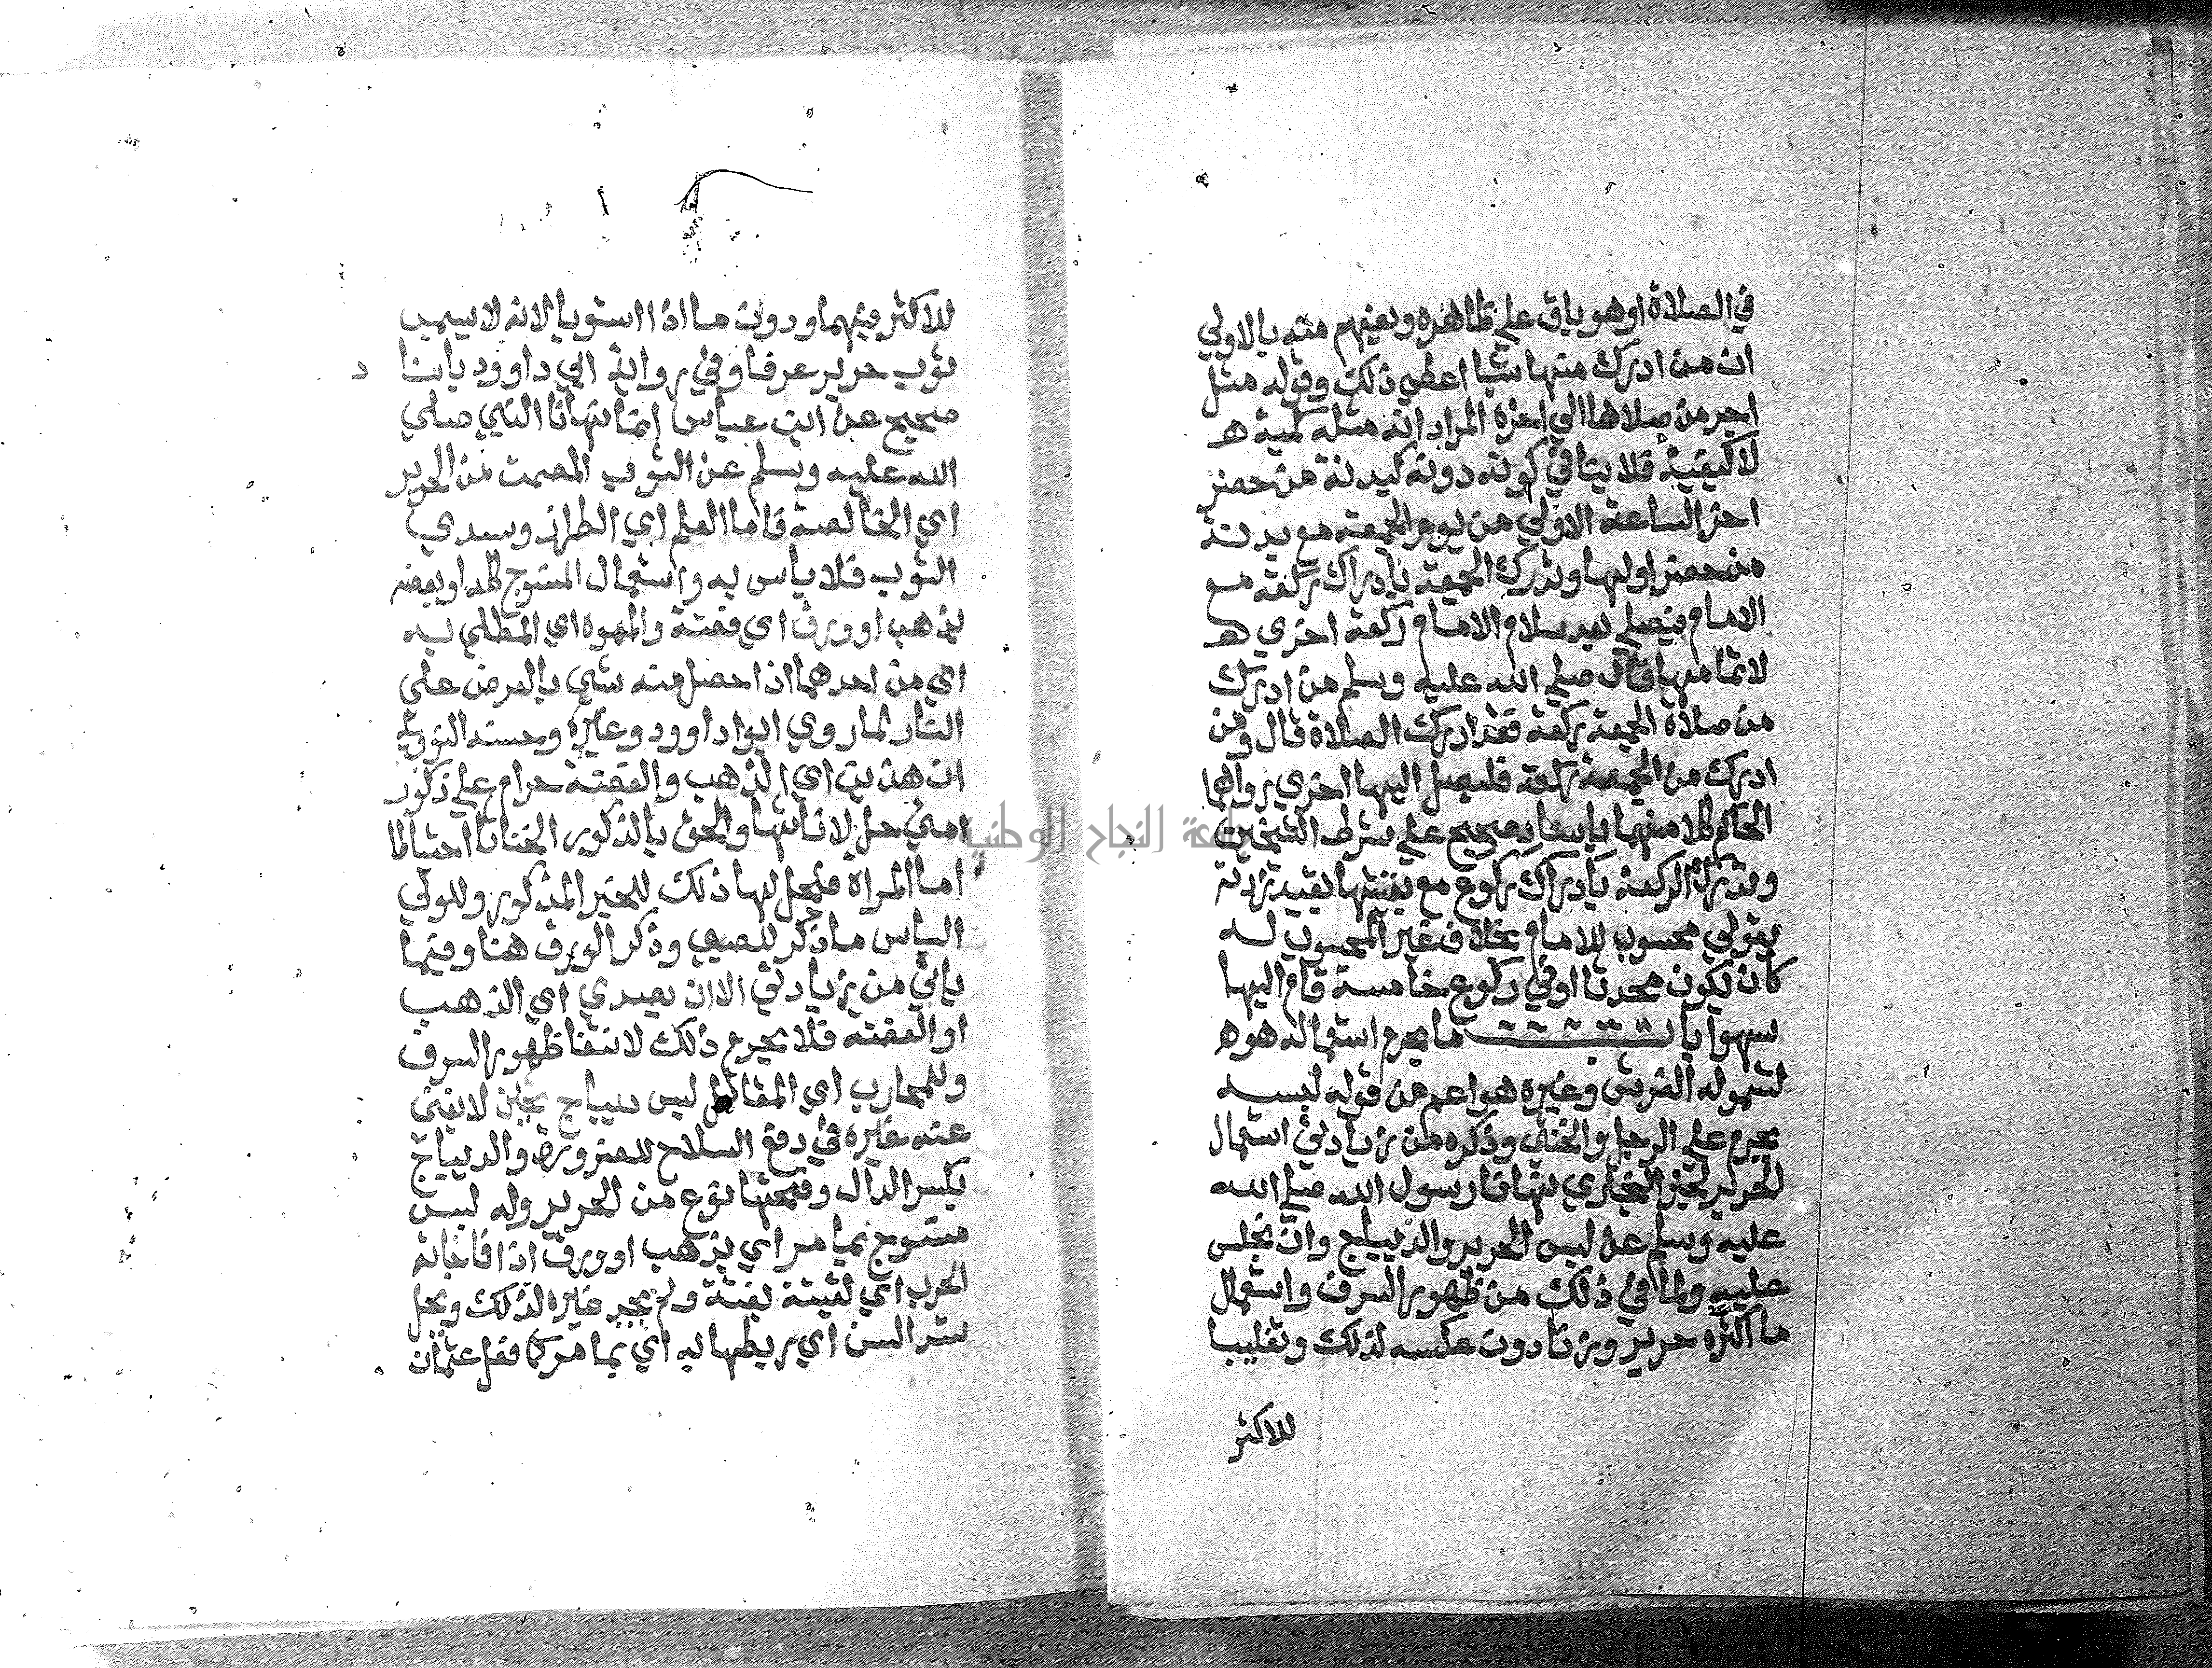 في الصلاة او هو باق علي ظاهره ويفهم منه بالاولي
ان من ادرك منها شيا اعطي ذلك وقوله مثل
اجر من صلاها الي اخره المراد انه مثله كمية هـ
لا كيفية فلا ينافي كونه دونه كبدنة من حضر
اخر الساعة الاولي من يوم الجمعة مع بدنة
من حضر اولها وتدرك الجمعة بادراك ركعة مع
الامام فيصلي بعد سلام الامام ركعة اخري هـ
لاتمامها قال صلي الله عليه وسلم من ادرك
من صلاة الجمعة ركعة فقد ادرك الصلاة قال ومن
ادرك من الجمعة ركعة فليصل اليها اخري رواهما
الحاكم كلا منهما باسناد صحيح علي شرط الشيخين
وتدرك الركعة بادراك ركوع مع بقيتها بقيد زدته
بقولي محسوب للامام بخلاف غير المحسوب له
كان يكون محدثا او في ركوع خامسة قام اليها
سهوا باب ما يحرم استعماله هو هـ
لشموله الفرش وغيره هو اعم من قوله لبسه
يحرم علي الرجل والخنثي وذكره من زيادتي استعمال
الحرير لخبر البخاري نهانا رسول الله صلي الله
عليه وسلم عن لبس الحرير والديباج وان نجلس
عليه ولما في ذلك من ظهور السرف واستعمال
ما اكثره حرير وزنا دون عكسه لذلك وتغليبا
للاكثر
للاكثر فيهما ودون ما اذا استويا لانه لا يسمي
ثوب حرير عرفا وفي رواية ابي داوود باسنا د
صحيح عن ابن عباس انما نهانا النبي صلي
الله عليه وسلم عن الثوب المصمت من الحرير
اي الخالصة فاما العلم اي الطراز وسدي
الثوب فلا باس به واستعمال المنسوج كله او بعضه
بذهب او ورق اي فضة والمموه اي المطلي به
اي من احدهما اذا حصل منه شي بالعرض علي
النار لما روي ابو داوود وغيره وحسنه النووي
ان هذين اي الذهب والفضة حرام علي ذكور
امتي حل لاناثها والحق بالذكور الخناثا احتياطا
اما المراة فيحل لها ذلك للخبر المذكور وللولي
الباس ما ذكر للصبي وذكر الورق هنا وفيما
ياتي من زيادتي الا ان يصدي اي الذهب
او الفضة فلا يحرم ذلك لانتفا ظهور السرف
وللمحارب اي المقاتل لبس ديباج ثخين لا يغني
عنه غيره في دفع السلاح للضرورة والديباج
بكسر الدال وفتحها نوع من الحرير وله لبس
منسوج بما مر اي بذهب او ورق اذا فاجاته
الحرب اي لقيته بغتة ولم يجد غيره لذلك ويحل
شد السن اي ربطها به اي بما مر كما فعل عثمان
جامعة النجاح الوطنية